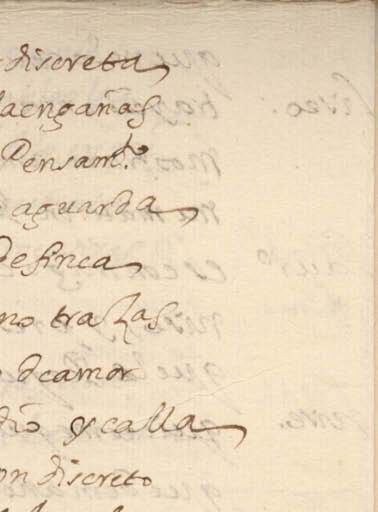 discreta
laengañas
Pensamto
aguarda
definca
no trazas
deamor
dio y calla
on discreto